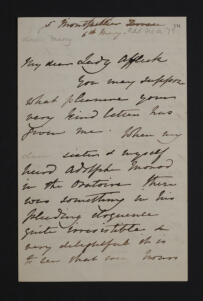 5 Montpellier
My dear Lady Affleck
You may suppose
what pleasure your
very kind letter has
given me. When my
sister & myself
heard Adolph Monod
in the Oratoire there
was something in his
pleading eloquence
quite irresistible &
very delightful it is
to see that